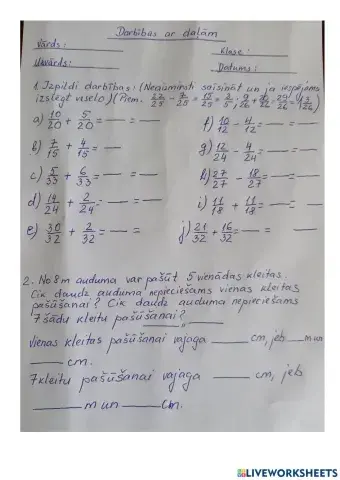 Darbības ar daļām
Vārds:
Klase:
Uzvārds:
Datums:
1. Izpildi darbības! (Neaizmirsti saīsināt un ja iespējams
izslēgt veselo)
a) 10/20 + 5/20 = — = —
f) 10/12 - 4/12 = — = —
b) 7/15 + 4/15 = —
g) 12/24 - 4/24 = — = —
c) 5/33 + 6/33 = — = —
h) 27/27 - 18/27 = — = —
d) 14/24 + 2/24 = — = —
i) 11/18 + 11/18 = — = —
e) 30/32 + 2/32 = — = —
j) 21/32 + 16/32 = — = —
2. No 8m auduma var pašūt 5 vienādas kleitas.
Cik daudz auduma nepieciešams vienas kleitas
pašūšanai? Cik daudz auduma nepieciešams
7 šādu kleitu pašūšanai?
Vienas kleitas pašūšanai vajaga ___ cm, jeb ___ m un
___ cm.
7 kleitu pašūšanai vajaga ___ cm, jeb
___ m un ___ cm.
LIVEWORKSHEETS